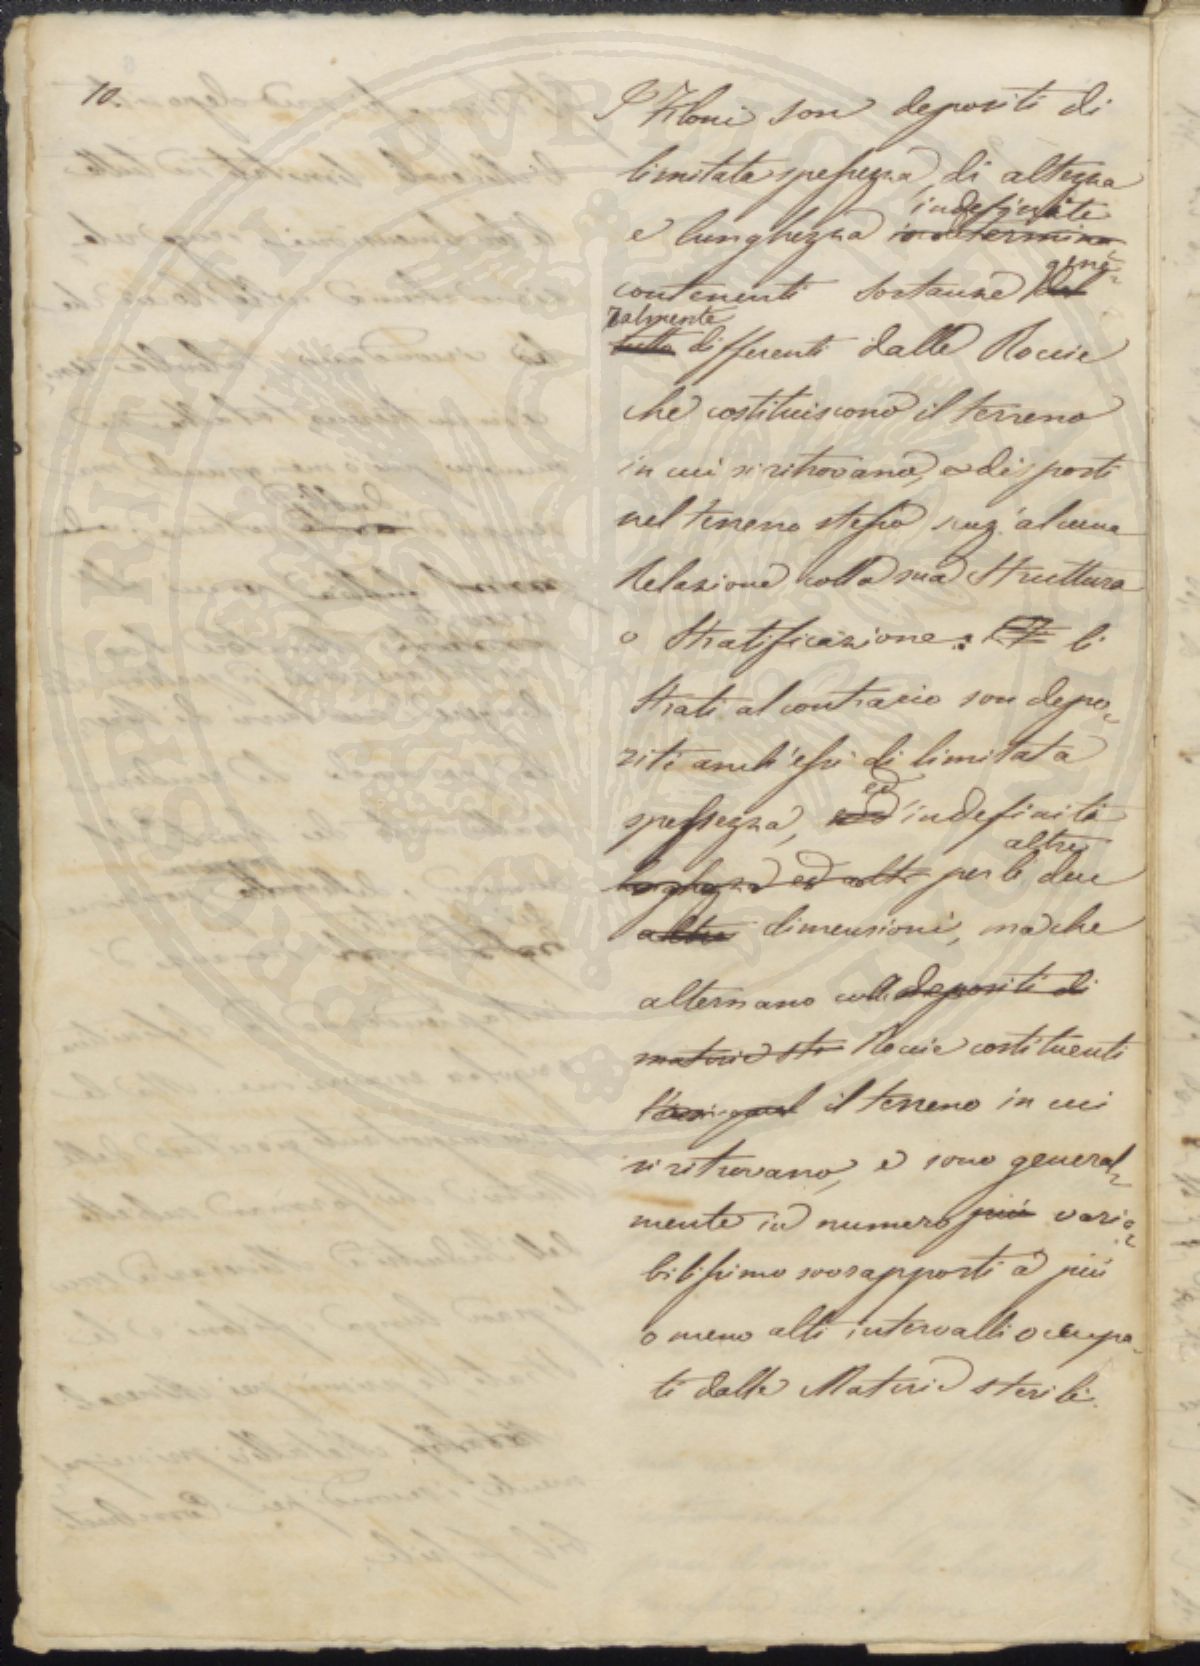 10.
I Filoni son depositi di
limitata spessezza, di altezza
indefinite
e lunghezza indetermina
gene-
contenenti sostanze del
ralmente
tutto differenti dalle Roccie
che costituiscono il terreno
in cui si ritrovano, e disposti
nel terreno stesso senz'alcuna
Relazione colla sua Struttura
o Stratificazione: li
Strati al contrario son depo-
siti anch'essi di limitata
ed
spessezza, indefiniti
altre
lunghezza ed alt per le due
altre dimensioni, ma che
alternano colle depositi di
materie ste Roccie costituenti
il terreno in cui
si ritrovano, e sono general-
mente in numero più varia-
bilissimo sovrapposti a più
o meno alti intervalli occupa-
ti dalle Materie sterili.